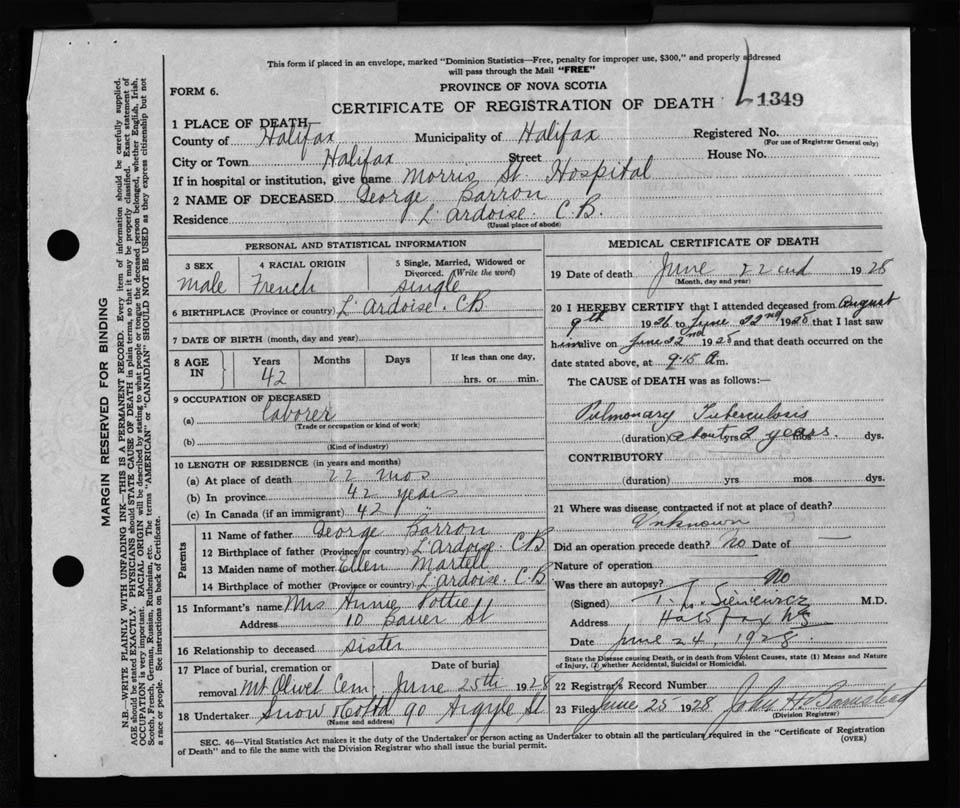 This form if placed in an envelope, marked "Dominion Statistics—Free, penalty for improper use, $300," and properly addressed
will pass through the Mail "FREE"
PROVINCE OF NOVA SCOTIA
FORM 6.
CERTIFICATE OF REGISTRATION OF DEATH
1349
1 PLACE OF DEATH
County of Halifax Municipality of Halifax Registered No.
(For use of Registrar General only)
City or Town Halifax Street House No.
If in hospital or institution, give name Morris St. Hospital
2 NAME OF DECEASED George Barron
Residence L'Ardoise. C.B.
(Usual place of abode)
PERSONAL AND STATISTICAL INFORMATION
3 SEX
male
4 RACIAL ORIGIN
French
5 Single, Married, Widowed or
Divorced. (Write the word)
single
6 BIRTHPLACE (Province or country) L'Ardoise. C.B.
7 DATE OF BIRTH (month, day and year)
8 AGE IN
Years
42
Months
Days
If less than one day,
hrs. or min.
9 OCCUPATION OF DECEASED
(a) laborer
(Trade or occupation or kind of work)
(b)
(Kind of industry)
10 LENGTH OF RESIDENCE (in years and months)
(a) At place of death 22 mos
(b) In province 42 years
(c) In Canada (if an immigrant) 42 "
Parents
11 Name of father George Barron
12 Birthplace of father (Province or country) L'Ardoise. C.B
13 Maiden name of mother Ellen Martell
14 Birthplace of mother (Province or country) L'Ardoise. C.B
15 Informant's name Mrs Annie Pottie
Address 10 Bauer St
16 Relationship to deceased sister
17 Place of burial, cremation or
Date of burial
removal Mt Olivet Cem. June 25th 1928
18 Undertaker Snow & Co Ltd 90 Argyle St
(Name and address)
MEDICAL CERTIFICATE OF DEATH
19 Date of death June 22nd 1928
(Month, day and year)
20 I HEREBY CERTIFY that I attended deceased from August
9th 1926 to June 22nd 1928 that I last saw
him alive on June 22nd 1928 and that death occurred on the
date stated above, at 9.15 A m.
The CAUSE OF DEATH was as follows:—
Pulmonary Tuberculosis
(duration) about yrs 2 years. mos dys.
CONTRIBUTORY
(duration) yrs mos dys.
21 Where was disease contracted if not at place of death?
Unknown
Did an operation precede death? No Date of —
Nature of operation
Was there an autopsy? No
(Signed) Sieniewicz M.D.
Address Halifax NS
Date June 24, 1928
State the Disease causing Death, or in death from Violent Causes, state (1) Means and Nature
of Injury, (2) whether Accidental, Suicidal or Homicidal.
22 Registrar's Record Number
23 Filed June 25 1928 John H.
(Division Registrar)
SEC. 46—Vital Statistics Act makes it the duty of the Undertaker or person acting as Undertaker to obtain all the particulars required in the "Certificate of Registration
of Death" and to file the same with the Division Registrar who shall issue the burial permit.
(OVER)
MARGIN RESERVED FOR BINDING
N.B.—WRITE PLAINLY WITH UNFADING INK—THIS IS A PERMANENT RECORD. Every item of information should be carefully supplied.
AGE should be stated EXACTLY. PHYSICIANS should STATE CAUSE OF DEATH in plain terms, so that it may be properly classified. Exact statement of
OCCUPATION is very important. RACIAL ORIGIN will be described by stating to what people or tongue the deceased person belonged, whether English, Irish,
Scotch, French, German, Russian, Ruthenian, etc. The terms "AMERICAN" or "CANADIAN" SHOULD NOT BE USED as they express citizenship but not
a race or people. See instructions on back of Certificate.